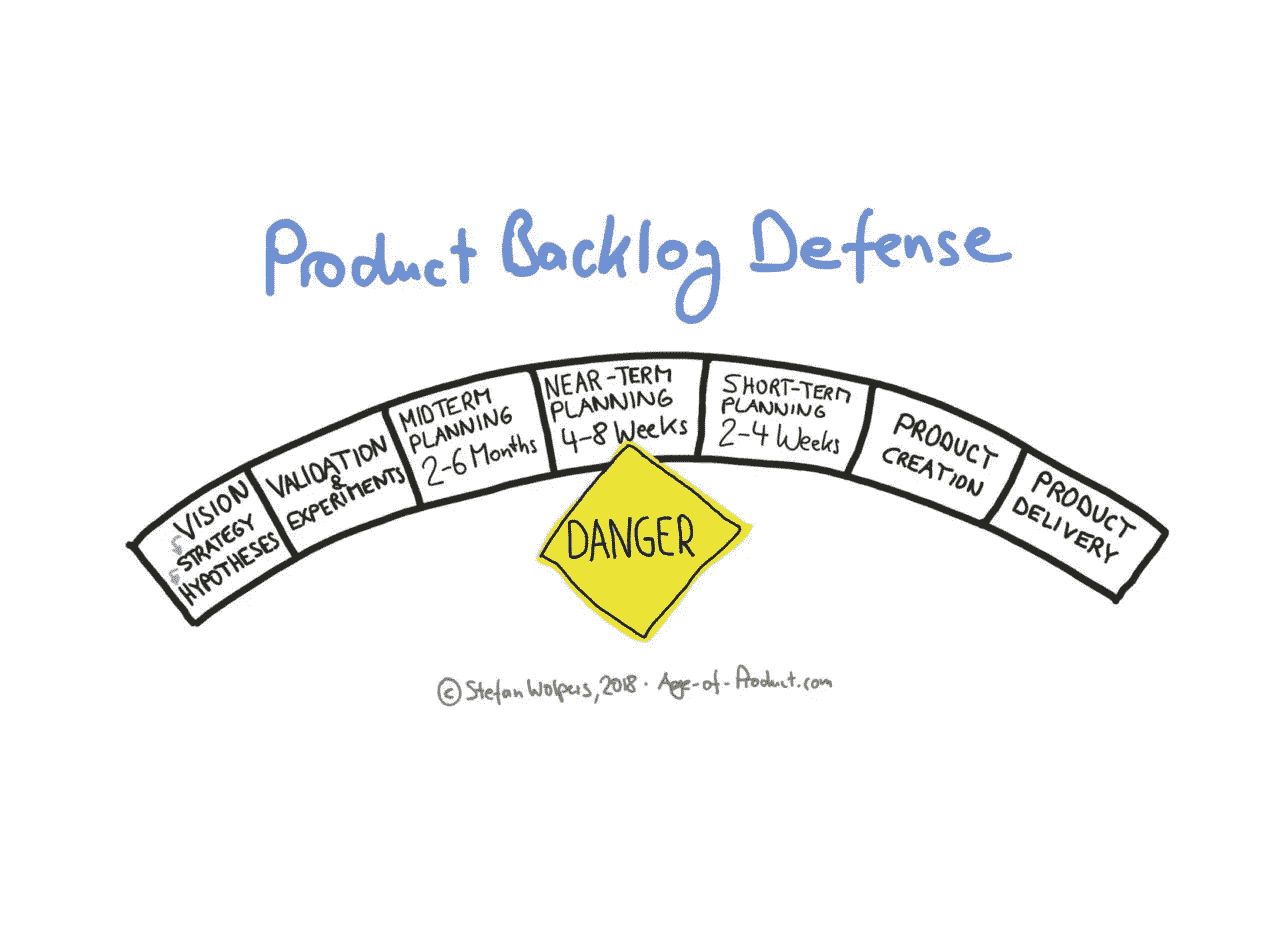 Product Backlog Defense
VISION
STRATEGY
HYPOTHESES
VALIDATION
&
EXPERIMENTS
MIDTERM
PLANNING
2-6 Months
NEAR-TERM
PLANNING
4-8 Weeks
SHORT-TERM
PLANNING
2-4 Weeks
PRODUCT
CREATION
PRODUCT
DELIVERY
DANGER
© Stefan Wolpers, 2018 · Age-of-Product.com